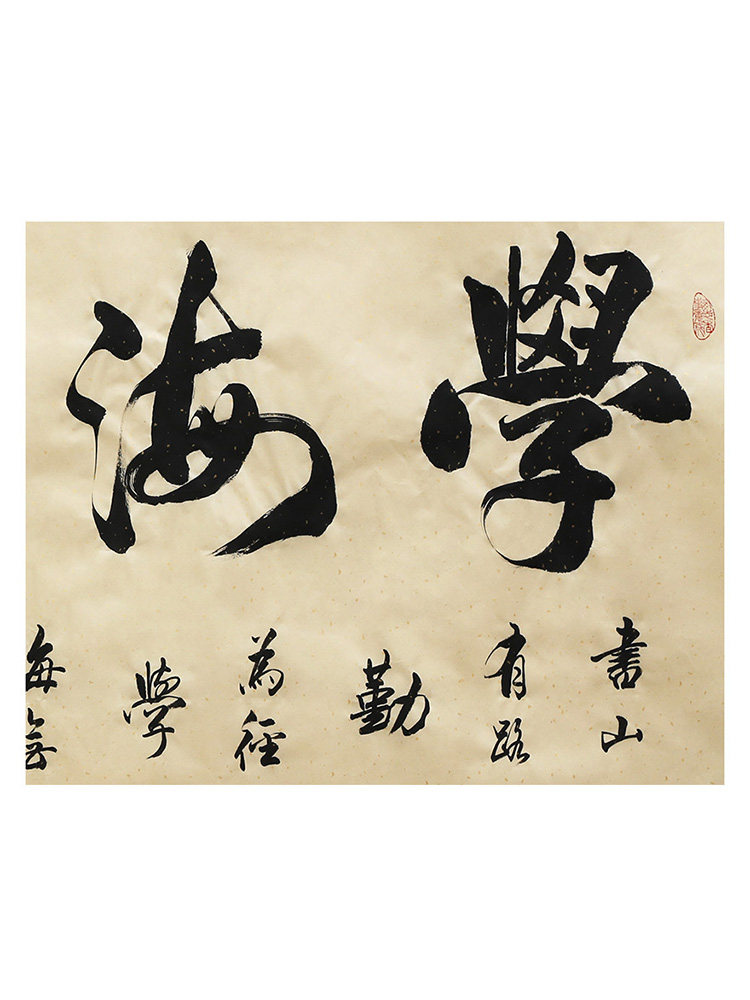 學海
書山
有路
勤
為徑
學
海無